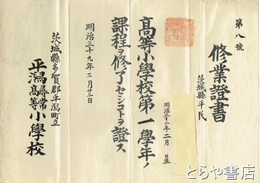 第八號
修業證書
茨城縣平民
明治二十二年二月生
高等小學校第一學年ノ
課程ヲ修了セシコトヲ證ス
明治三十九年三月廿三日
茨城縣多賀郡平潟町立
平潟尋常高等小學校
とらや書店